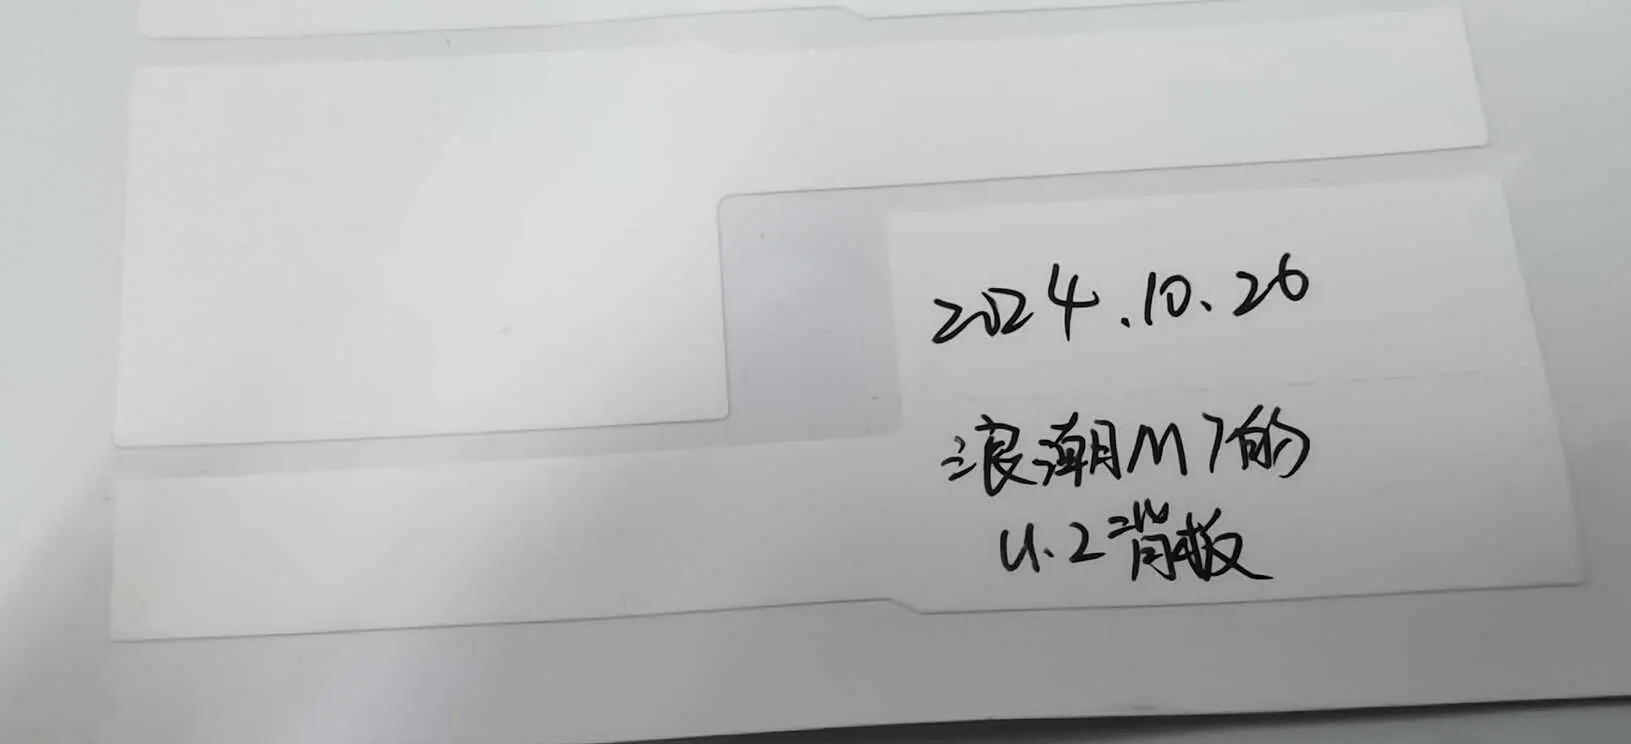 2024.10.26
浪潮M7的
U.2背板